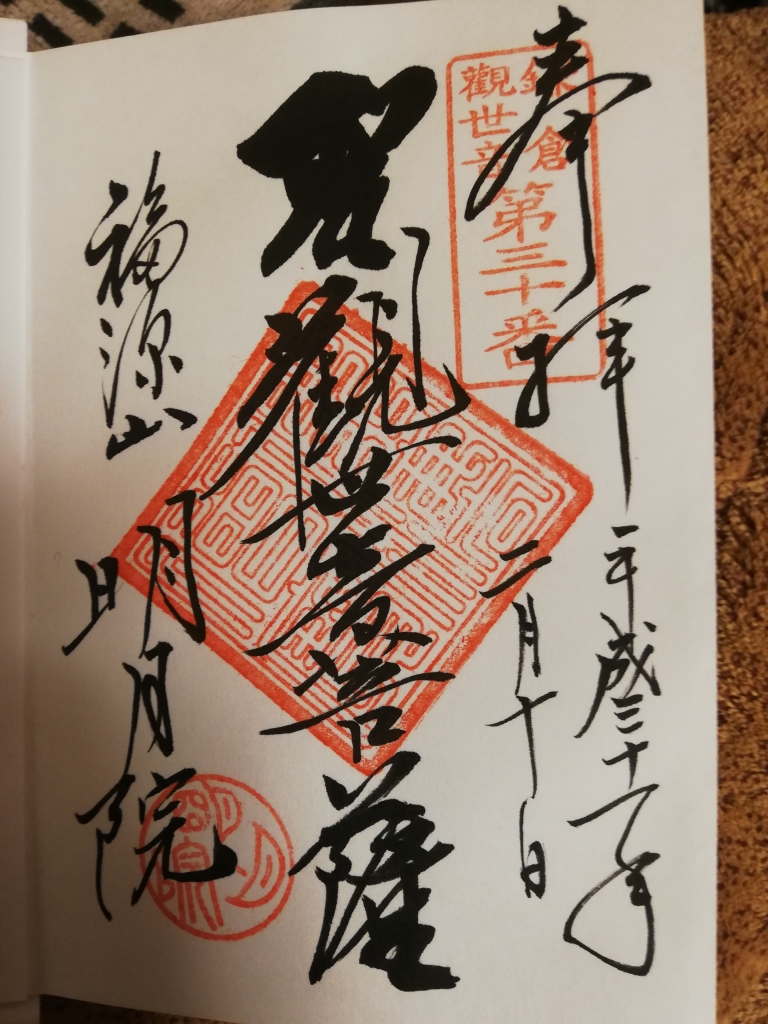 奉拝
平成三十一年
二月十日
鎌倉
觀世音
第三十番
聖觀世音菩薩
福源山
明月院